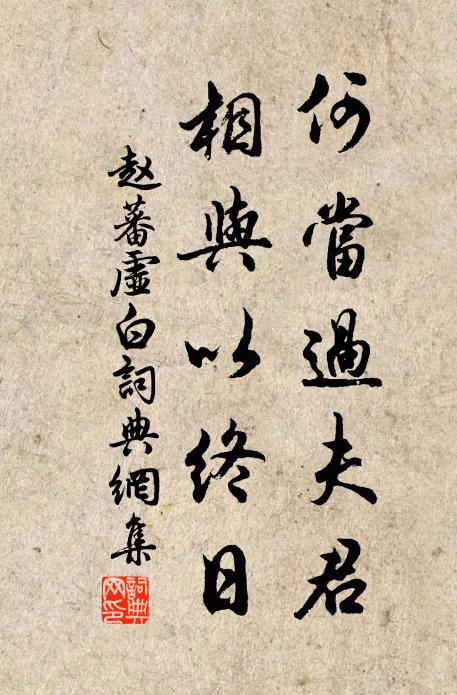 何當過夫君
相與以終日
赵蕃虛白詞典網集
詞典
网印